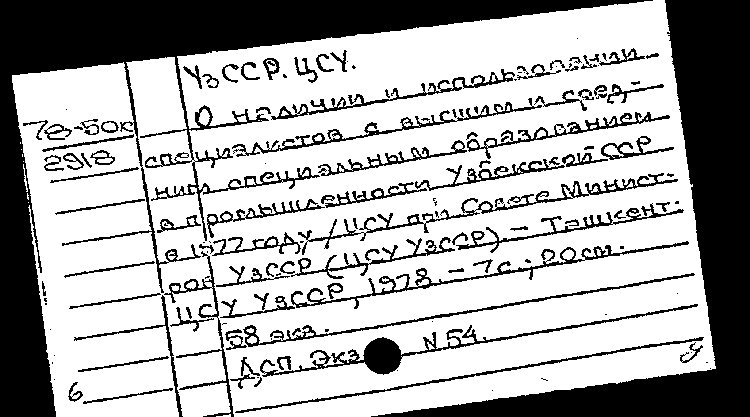 УзССР. ЦСУ.
О наличии и использовании
78-50к
2918
специалистов с высшим и сред-
ним специальным образованием
в промышленности Узбекской ССР
в 1977 году / ЦСУ при Совете Минист-
ров УзССР (ЦСУ УзССР). - Ташкент:
ЦСУ УзССР, 1978. - 7с.; 20см.
58 экз.
ДСП. Экз N 54.
6